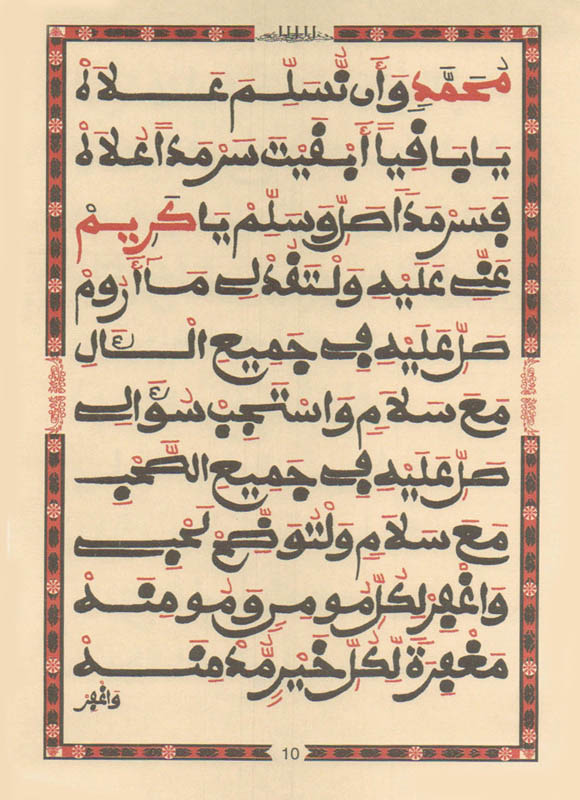 مُحَمَّدٍ وَأَن تُسَلِّمَ عَلَاهْ
يَا بَاقِياً أَبْقَيْتَ سَرْمَداً عُلَاهْ
فَسَرْمَداً صَلِّ وَسَلِّمْ يَا كَرِيمْ
عَنِّي عَلَيْهِ وَلْتَقُدْ لِي مَا أَرُومْ
صَلِّ عَلَيْهِ فِي جَمِيعِ الْـَالِ
مَعَ سَلَامٍ وَاسْتَجِبْ سُؤَالِي
صَلِّ عَلَيْهِ فِي جَمِيعِ الصَّحْبِ
مَعَ سَلَامٍ وَلْتُوَضِّحْ لَحْبِي
وَاغْفِرْ لِكُلِّ مُومِنٍ وَمُومِنَهْ
مَغْفِرَةً لِّكُلِّ خَيْرٍ مُّدْمِنَهْ
وَاغْفِرْ
10